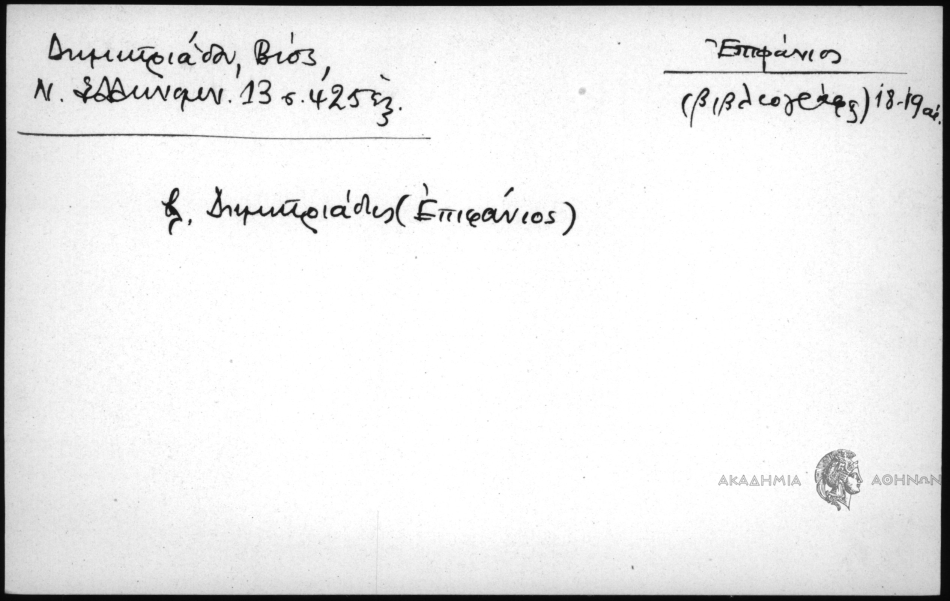 Δημητριάδου, Βίος,
Ν. Ἑλληνομν. 13 σ. 425 ἑξ.
Ἐπιφάνιος
(βιβλιογράφος) 18-19 αἰ.
βλ. Δημητριάδης (Ἐπιφάνιος)
ΑΚΑΔΗΜΙΑ ΑΘΗΝΩΝ